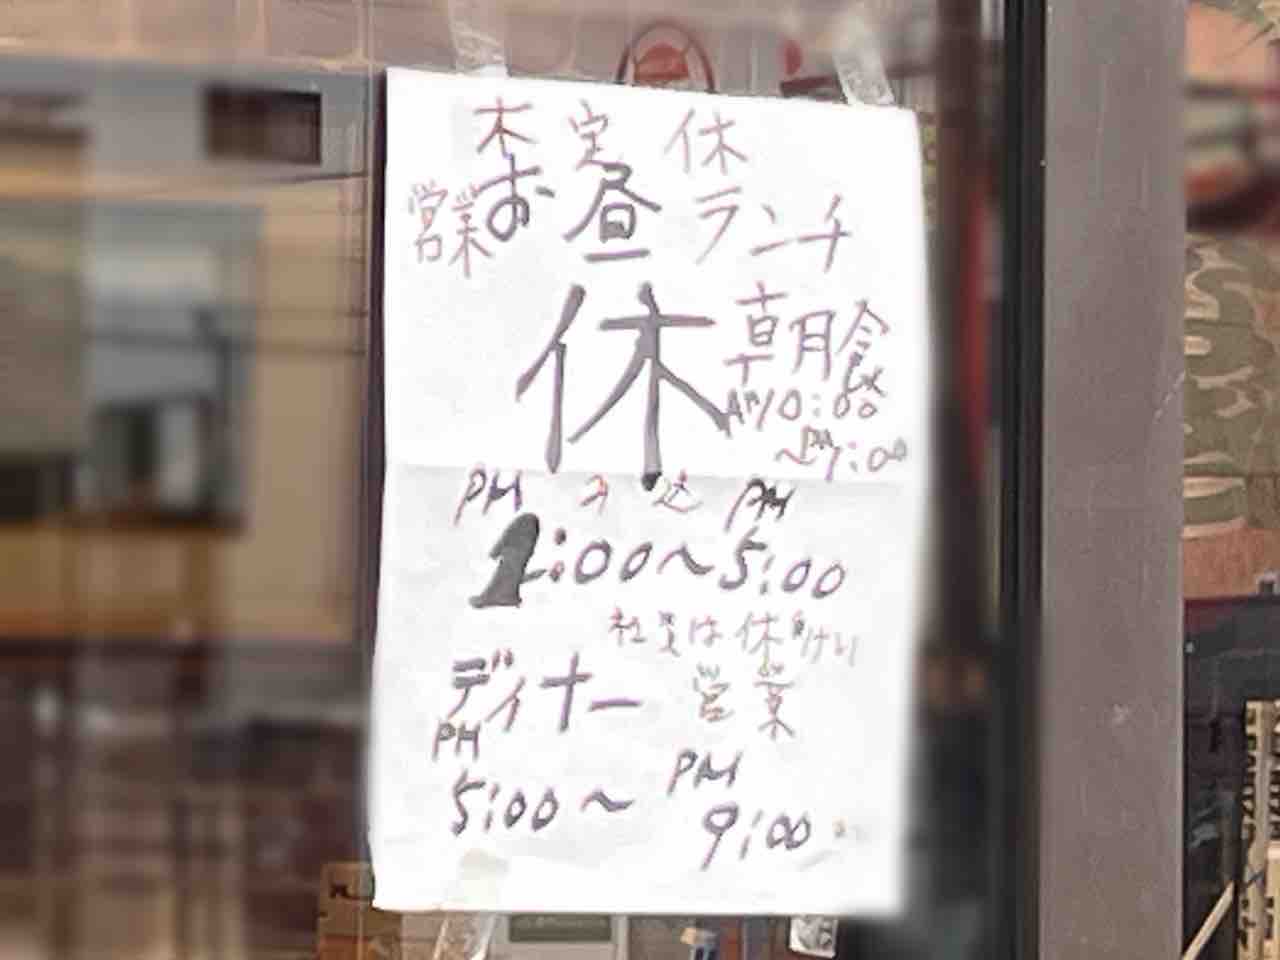 木定休
営業お昼ランチ
休
朝食
AM10:00
~PM1:00
PM PM
1:00~5:00
は休
ディナー営業
PM PM
5:00~9:00